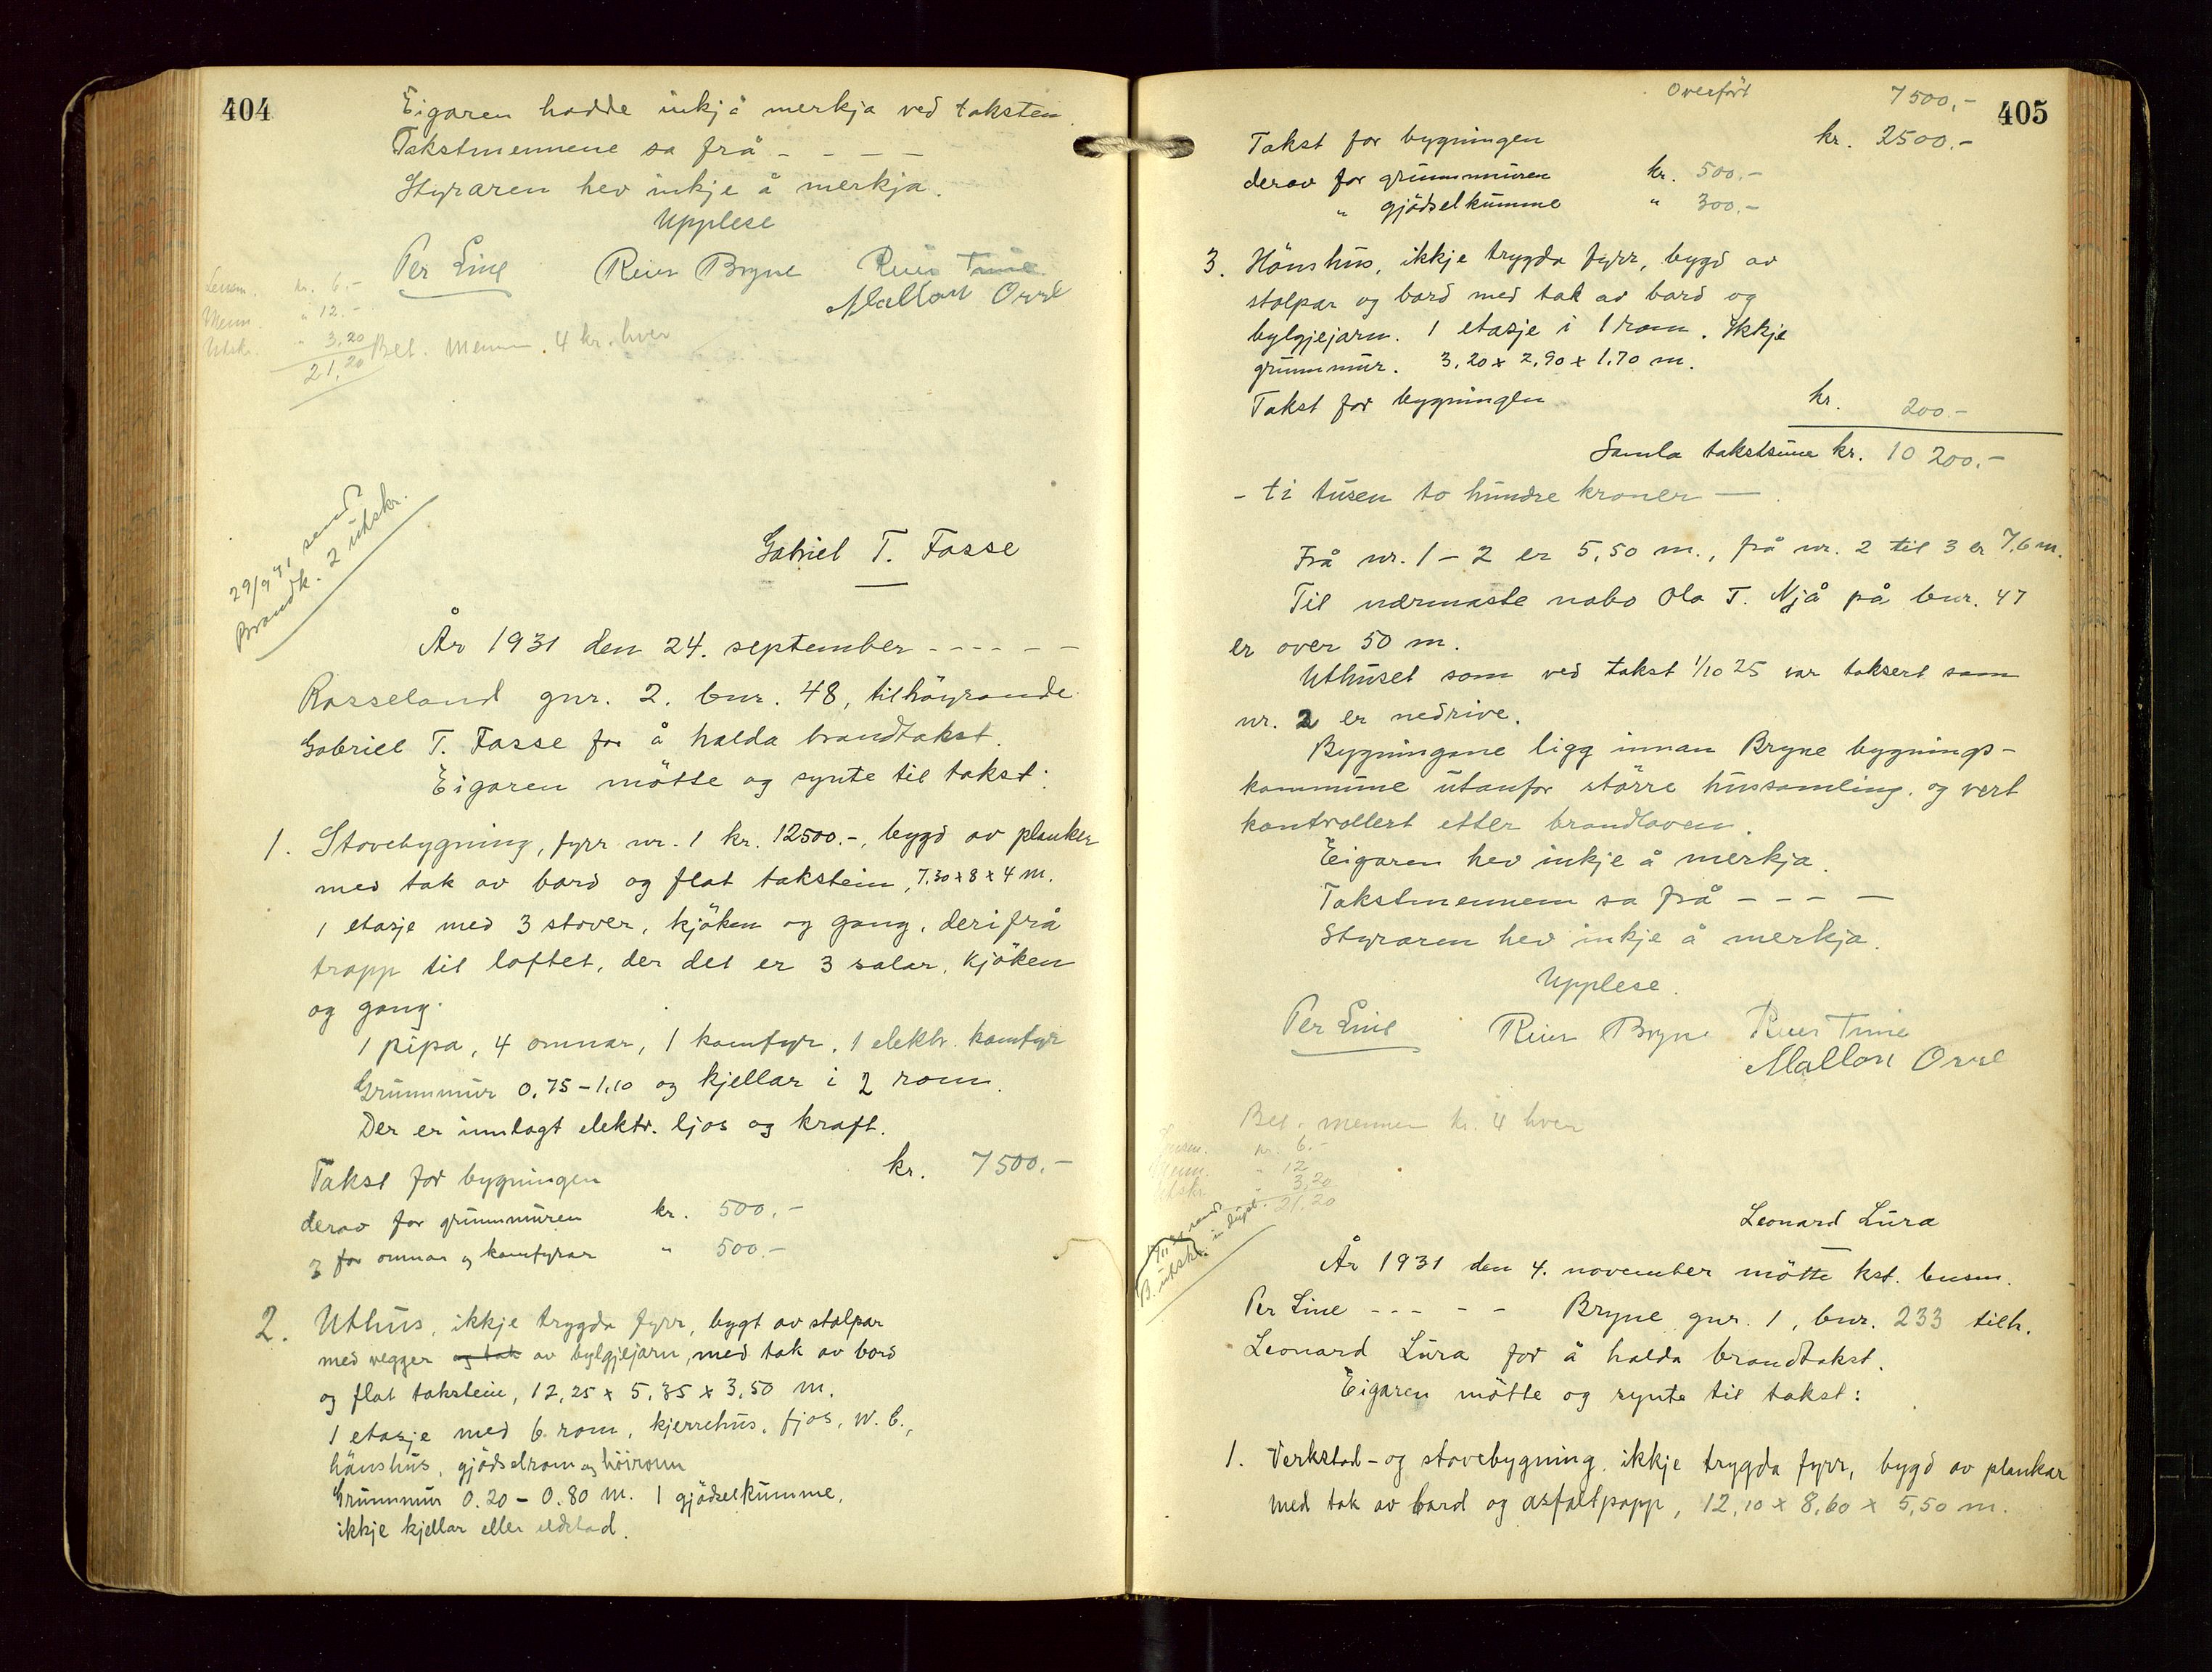 404
Eigaren hadde inkje merkja ved taksten.
Takstmennene sa frå - - - -
Styraren hev inkje å merkja.
Upplese
Per Line Reier Bryne Reier Time
Mallon Orre
Lensm. kr. 6.-
Menn. " 12.-
Utskr. " 3,20
21,20
Bet. mennen. 4 kr. hver
29/9 31 send
Brandk. 2 utskr.
Gabriel T. Fosse
År 1931 den 24. september - - - - -
Rosseland gnr. 2. bnr. 48, tilhöyrande
Gabriel T. Fosse for å halda brandtakst.
Eigaren mötte og synte til takst:
1. Stovebygning, fyrr nr. 1 kr. 12500.-, bygd av planker
med tak av bord og flat takstein, 7.30 x 8 x 4 m.
1 etasje med 3 stover, kjöken og gang, derifrå
trapp til loftet, der det er 3 salar, kjöken
og gang.
1 pipa, 4 omnar, 1 komfyr, 1 elektr. komfyr
Grunnmur 0.75 - 1.10 og kjellar i 2 rom.
Der er innlagt elektr. ljos og kraft.
Takst for bygningen kr. 7500.-
derav for grunnmuren kr. 500.-
og for omnar og komfyrar " 500.-
2. Uthus, ikkje trygda fyrr, bygt av stolpar
med vegger og tak av bylgjejarn, med tak av bord
og flat takstein, 12,25 x 5,35 x 3,50 m.
1 etasje med 6 rom, kjerrehus, fjos, W.C.,
hönshus, gjödselrom og höirom
Grunnmur 0.20 - 0.80 m. 1 gjödselkumme,
ikkje kjellar eller eldstad.
405
Overfört 7500,-
Takst for bygningen kr. 2500.-
derav for grunnmuren kr. 500.-
" gjödselkumme " 300.-
3. Hönshus, ikkje trygda fyrr, bygd av
stolpar og bord med tak av bord og
bylgjejarn. 1 etasje i 1 rom. Ikkje
grunnmur. 3,20 x 2,90 x 1,70 m.
Takst for bygningen kr. 200.-
Samla takstsum kr. 10 200.-
- ti tusen to hundre kroner -
Frå nr. 1 - 2 er 5,50 m., frå nr. 2 til 3 er 7,6 m.
Til nærmaste nabo Ola T. Njå på bnr. 47
er over 50 m.
Uthuset som ved takst 1/10 25 var taksert som
nr. 2 er nedrive.
Bygningane ligg innan Bryne bygnings-
kommune utanfor större hussamling, og vert
kontrollert etter brandloven.
Eigaren hev inkje å merkja.
Takstmennem sa frå - - - -
Styraren hev inkje å merkja.
Upplese.
Per Line Reier Bryne Reier Time
Mallon Orre
Bet. mennen kr. 4 hver
Lensm. kr. 6.-
Menn. " 12
Utskr. " 3,20
21,20
B. utskr. in dupl.
Leonard Lura
År 1931 den 4. november mötte kst. lensm.
Per Line - - - - - Bryne gnr. 1, bnr. 233 tilh.
Leonard Lura for å halda brandtakst.
Eigaren mötte og synte til takst:
1. Verkstad- og stovebygning, ikkje trygda fyrr, bygd av plankar
med tak av bord og asfaltpapp, 12,10 x 8,60 x 5,50 m.